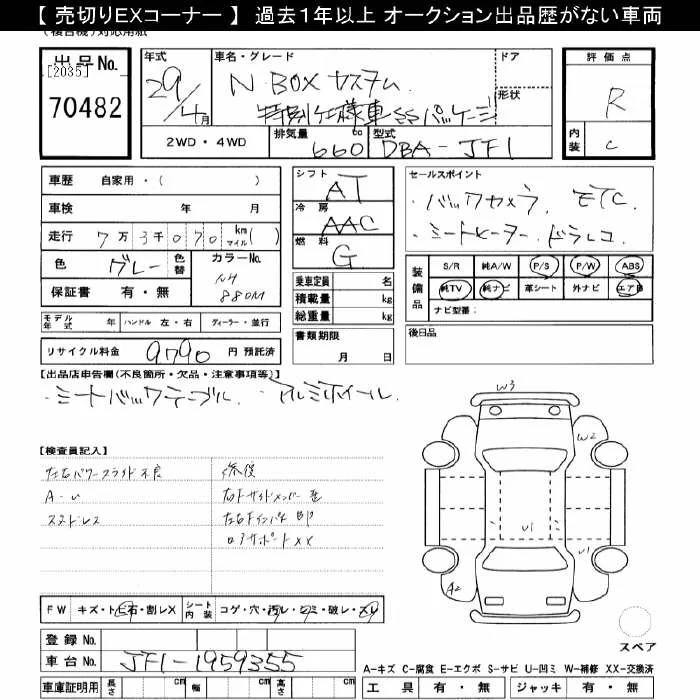 【 売切りEXコーナー 】 過去1年以上 オークション出品歴がない車両
出品No.
[2035]
70482
年式
29/4月
車名・グレード
N BOX カスタム
特別仕様車SSパッケージ
ドア
形状
評価点
R
内装
C
2WD・4WD
排気量
660 cc
型式
DBA-JF1
車歴 自家用・( )
車検 年 月
走行 7万3千070 km マイル ( )
色 グレー 色替 カラーNo. NH 880M
保証書 有・無
モデル年式 年 ハンドル 左・右 ディーラー・並行
リサイクル料金 9790 円 預託済
シフト
AT
冷房
AAC
燃料
G
乗車定員 名
積載量 kg
総重量 kg
書類期限
月 日
セールスポイント
・バックカメラ ETC
・シートヒーター ドラレコ
装備品
S/R 純A/W P/S P/W ABS
純TV 純ナビ 革シート 外ナビ エアB
ナビ型番:
後日品
【出品店申告欄(不良箇所・欠品・注意事項等)】
・シートバックテーブル ・アルミホイール
【検査員記入】
左右パワースライド不良
A-U
スタドレス
修復
右Fサイドメンバー
左右Fインパネ
ロアサポートXX
W3
W2
U1
U1
A2
FW キズ・トビ石・割レX シート内装 コゲ・穴・汚レ・シミ・破レ・スレ
登録No.
車台No. JF1-1959355
車庫証明用 長さ cm 幅 cm 高さ cm
スペア
A-キズ C-腐食 E-エクボ S-サビ U-凹ミ W-補修 XX-交換済
工具 有・無 ジャッキ 有・無